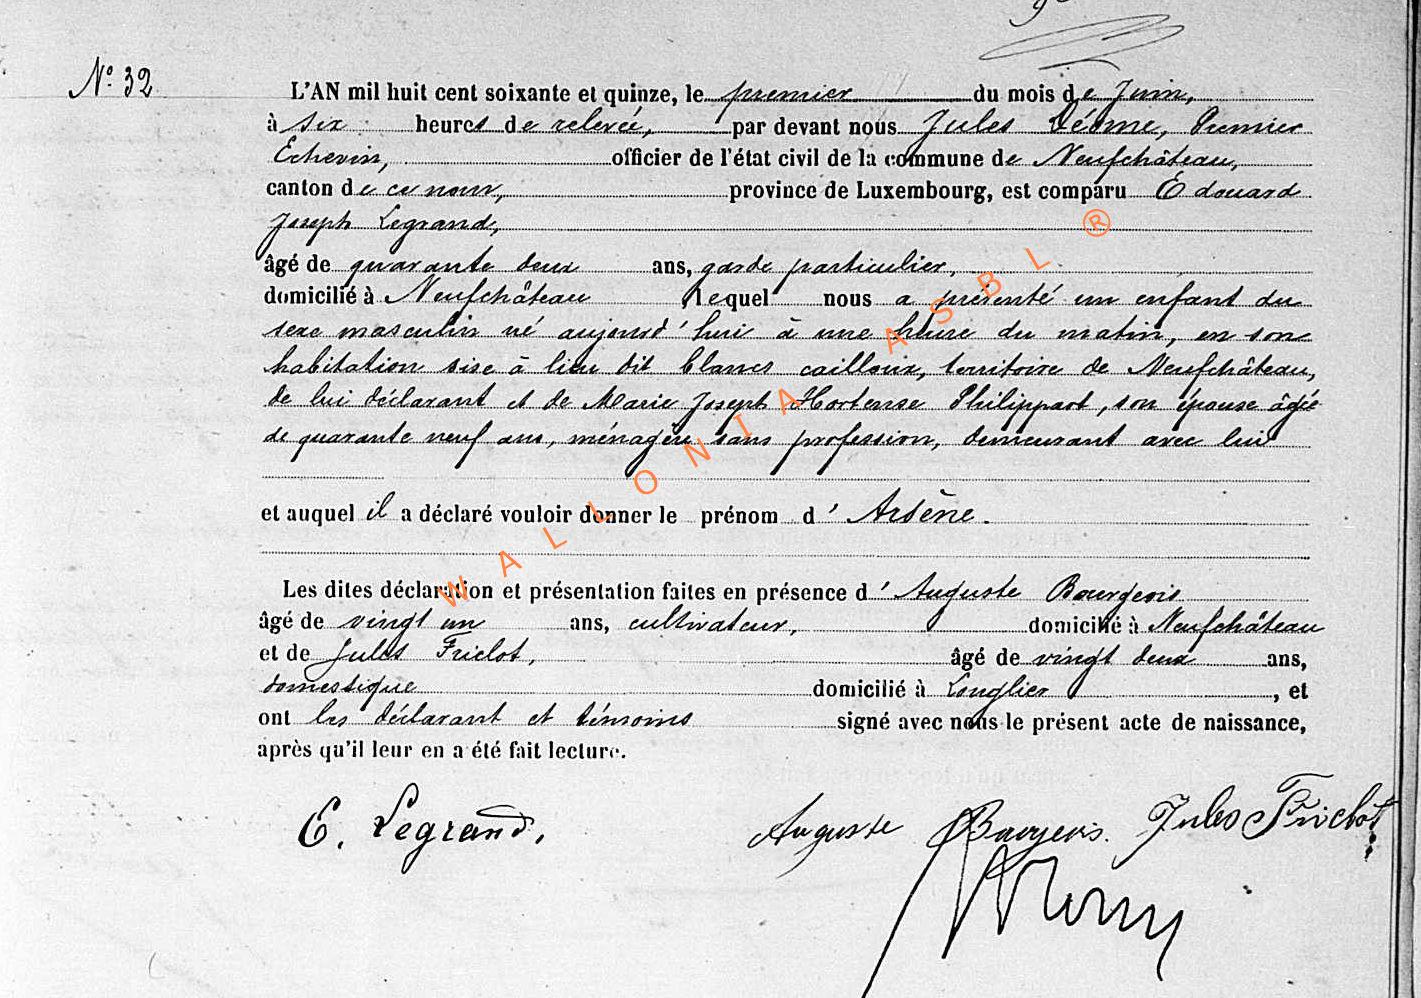 N° 32
L'AN mil huit cent soixante et quinze, le premier du mois de Juin,
à six heures de relevée, par devant nous Jules Léome, Premier
Echevin, officier de l'état civil de la commune de Neufchâteau,
canton de ce nom, province de Luxembourg, est comparu Edouard
Joseph Legrand,
âgé de quarante deux ans, garde particulier,
domicilié à Neufchâteau lequel nous a présenté un enfant du
sexe masculin né aujourd'hui à une heure du matin, en son
habitation sise à lieu dit blancs cailloux, territoire de Neufchâteau,
de lui déclarant et de Marie Joseph Hortense Philippart, son épouse âgée
de quarante neuf ans, ménagère sans profession, demeurant avec lui
et auquel il a déclaré vouloir donner le prénom d'Arsène.
Les dites déclaration et présentation faites en présence d'Auguste Bourgeois
âgé de vingt un ans, cultivateur, domicilié à Neufchâteau
et de Jules Friclot, âgé de vingt deux ans,
domestique domicilié à Longlier, et
ont les déclarant et témoins signé avec nous le présent acte de naissance,
après qu'il leur en a été fait lecture.
E. Legrand, Auguste Bourgeois. Jules Friclot
WALLONIA ASBL ®